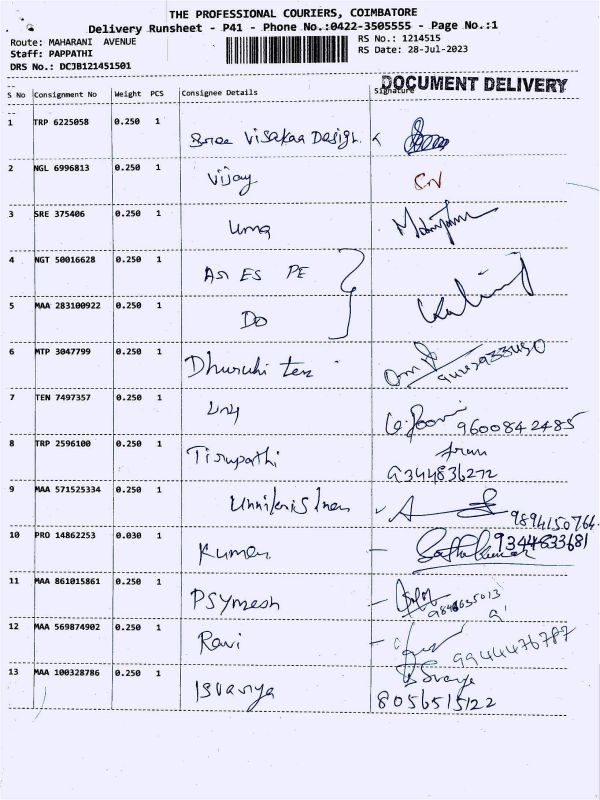 THE PROFESSIONAL COURIERS, COIMBATORE
Delivery Runsheet - P41 - Phone No.:0422-3505555 - Page No.:1
Route: MAHARANI AVENUE
RS No.: 1214515
Staff: PAPPATHI
RS Date: 28-Jul-2023
DRS No.: DCJB121451501
DOCUMENT DELIVERY
S No Consignment No Weight PCS Consignee Details Signature
1 TRP 6225058 0.250 1 Sree Visakaa Design
2 NGL 6996813 0.250 1 Vijay
3 SRE 375406 0.250 1 Uma
4 NGT 50016628 0.250 1 PE
5 MAA 283100922 0.250 1 DO
6 MTP 3047799 0.250 1 Dhuruhi tex
7 TEN 7497357 0.250 1 9600842485
8 TRP 2596100 0.250 1 Tirupathi Arun
9344836272
9 MAA 571525334 0.250 1 9894150764
10 PRO 14862253 0.030 1 Kumar Sathukumar 9344633681
11 MAA 861015861 0.250 1
12 MAA 569874902 0.250 1 Ravi 9944476787
13 MAA 100328786 0.250 1 Isvarya
8056515122